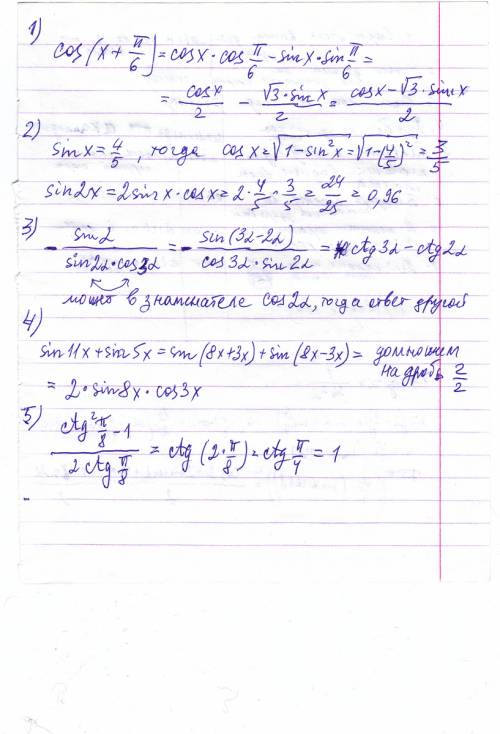 1)
cos(x + π/6) = cosx · cos π/6 − sinx · sin π/6 =
= cosx/2 − √3 · sinx/2 = cosx − √3 · sinx/2
2)
sinx = 4/5, тогда cosx = √1−sin²x = √1−(4/5)² = 3/5
sin2x = 2sinx · cosx = 2 · 4/5 · 3/5 = 24/25 = 0,96
3)
− sin2/sin2α · cos3α = − sin(3α−2α)/cos3α · sin2α = ctg3α − ctg2α
может в знаменателе cos2α, тогда ответ другой
4)
sin11x + sin5x = sin(8x+3x) + sin(8x−3x) = домножаем
на дробь 2/2
= 2 · sin8x · cos3x
5)
ctg² π/8 − 1/2 ctg π/8 = ctg(2 · π/8) = ctg π/4 = 1